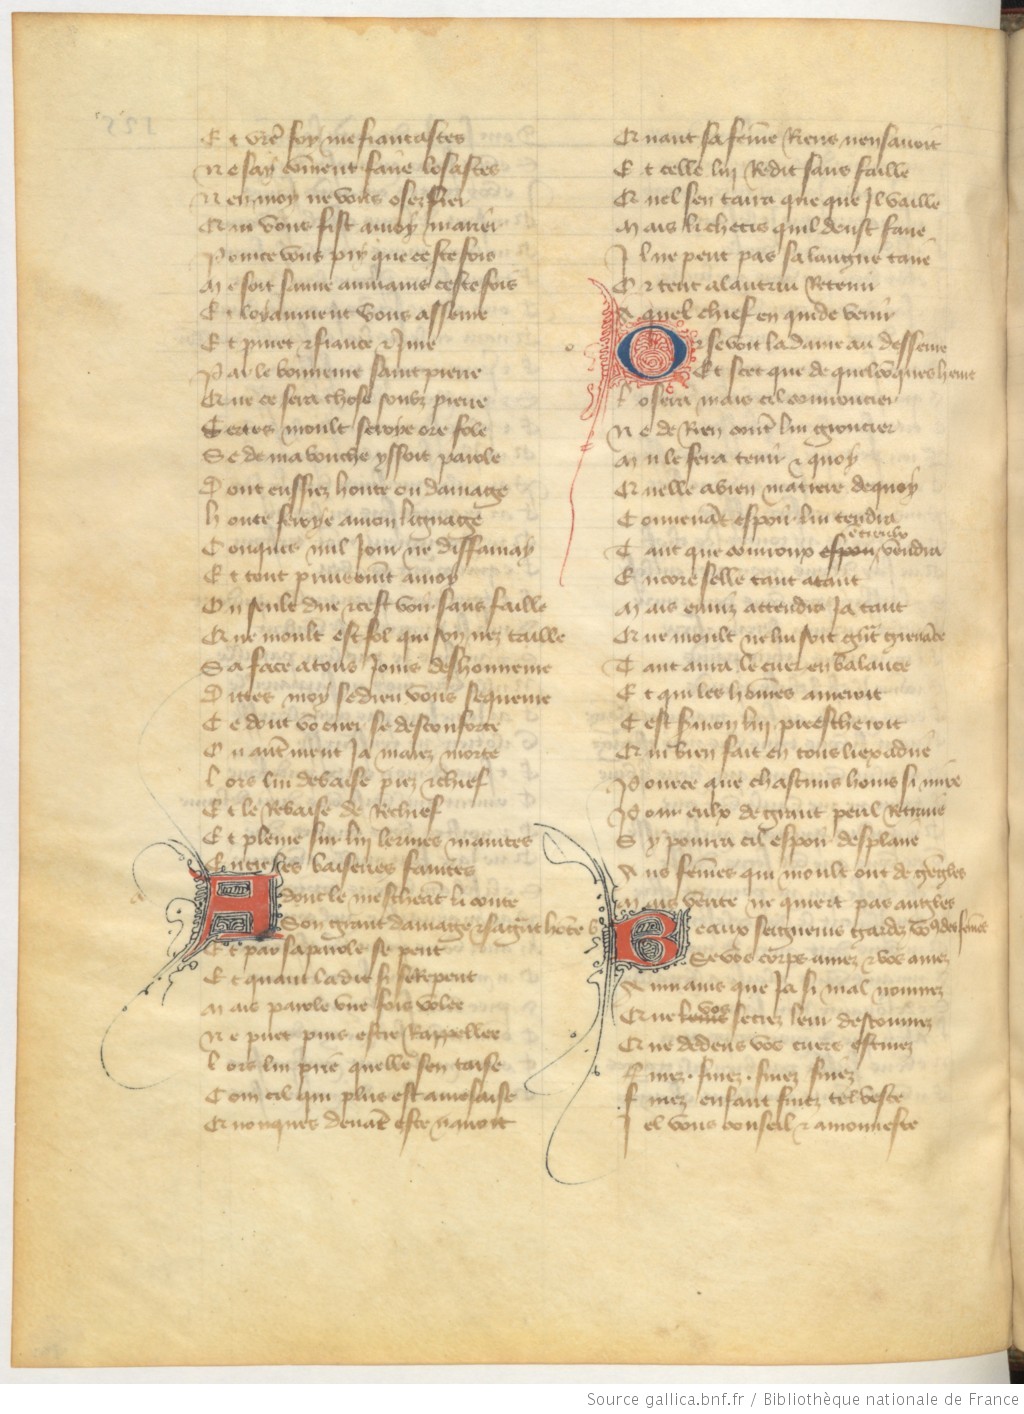 E t vr̃e foy me fiancastes
N e say cõment faire losastes
N en moy ne vous osez fier
Qui vous fist a moy marier
P our ce vous pry que ceste fois
M e soit saine au mains ceste fois
E t loyaument vous asseure
E t pmet & fiance & Jure
P ar le bonneure saint pierre
Q ue ce sera chose soubz pierre
C ertes moult seroye ore fole
S e de ma bouche yssoit parole
D ont eussiez honte ou damage
h onte feroye a mon lignage
C onques nul Jour ne diffamay
E t tout
O n seult dire & cest voir sans faille
Q ue moult est fol qui son nez taille
S a face a tous Jours deshonneure
D ittes moy se dieu vous sequeure
C e dont vo cuer se desconforte
O u autment Ja marez morte
L ors lui debaise piez & chief
E t le Rebaise de Rechief
E t pleure sur lui lermes maintes
E ntre les baiseries faintes
A doncle mescheãt li conte
Son grant damage & sa gñt honte
E t par sa parole se pent
E t quant la dit si se Repent
M ais parole vne fois volee
N e puet puis estre Rappellee
L ors lui prie quelle sen taise
C om cil qui plus est a mesaise
Q uonques deuãt este nauoit
Q uant sa feme Riens nen sauoit
E t celle lui Redit sans faille
Q uel sen taira que que Jl vaille
M ais li chetis quil deust faire
J l ne peut pas sa langue taire
O r tent a lautrui Retenir
A quel chief en quide venir
O r se voit la dame au desseure
Et scet que de quelcõques heure
N osera mais cil courroucier
N e de Rien contr̃ lui groucier
M u le fera tenir & quoy
Q uelle a bien matiere dequoy
C onuenãt espoir lui tendra
T ant que courroux espoir entreulx vendra
E ncore selle tant atant
M ais enuiz attendra Ja tant
Q ue moult ne lui soit gñt greuãce
T ant aura le cuer en balance
E t qui les hõmes ameroit
C est sermon lui preescheroit
Q ui bien fait en tous liex a dire
P our ce que chascuns homs si mire
P our eulx de grant peril Retraire
S y pourra cil espoir desplaire
A us femes qui moult ont de gẽgles
M ais verite ne quiert pas angles
B eaux seigneurs gardez vo9 des femes
Se vos corps amez & vos ames
A u mains que Ja si mal nouurez
Q ue vos secrez leur descouurez
Q ue dedens vos cuers estuiez
F uiez . fuiez . fuiez fuiez
F uiez enfant fuiez tel beste
J el vous conseil & amonneste
Source gallica.bnf.fr / Bibliothèque nationale de France